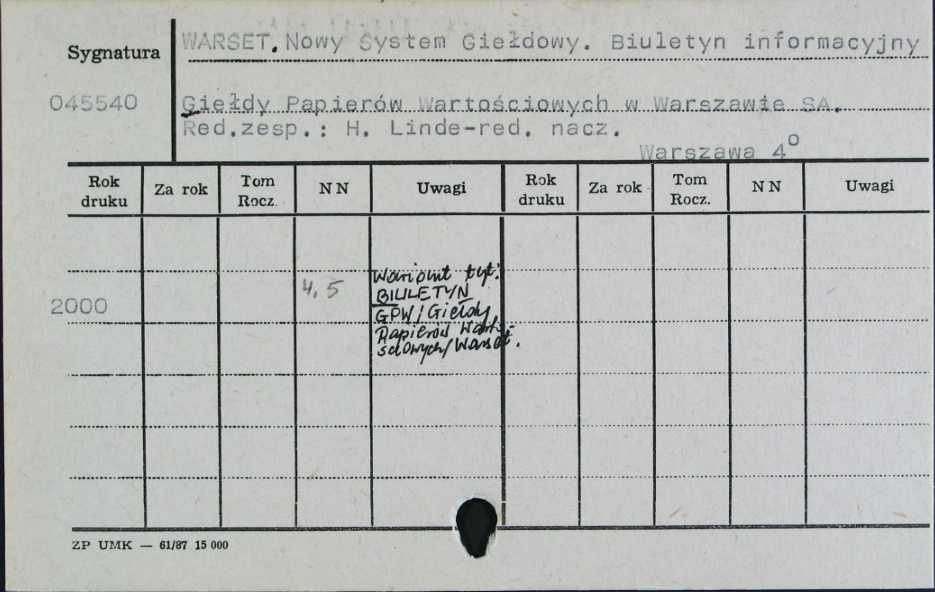 Sygnatura
WARSET.Nowy System Giełdowy. Biuletyn informacyjny
045540
Giełdy Papierów Wartościowych w Warszawie SA.
Red.zesp.: H. Linde-red. nacz.
Warszawa 4°
Rok druku Za rok Tom Rocz. N N Uwagi Rok druku Za rok Tom Rocz. N N Uwagi
2000 4, 5
Wariant tyt:
BIULETYN
GPW/Giełdy
Papierów Warto-
ściowych/Warset.
ZP UMK — 61/87 15 000